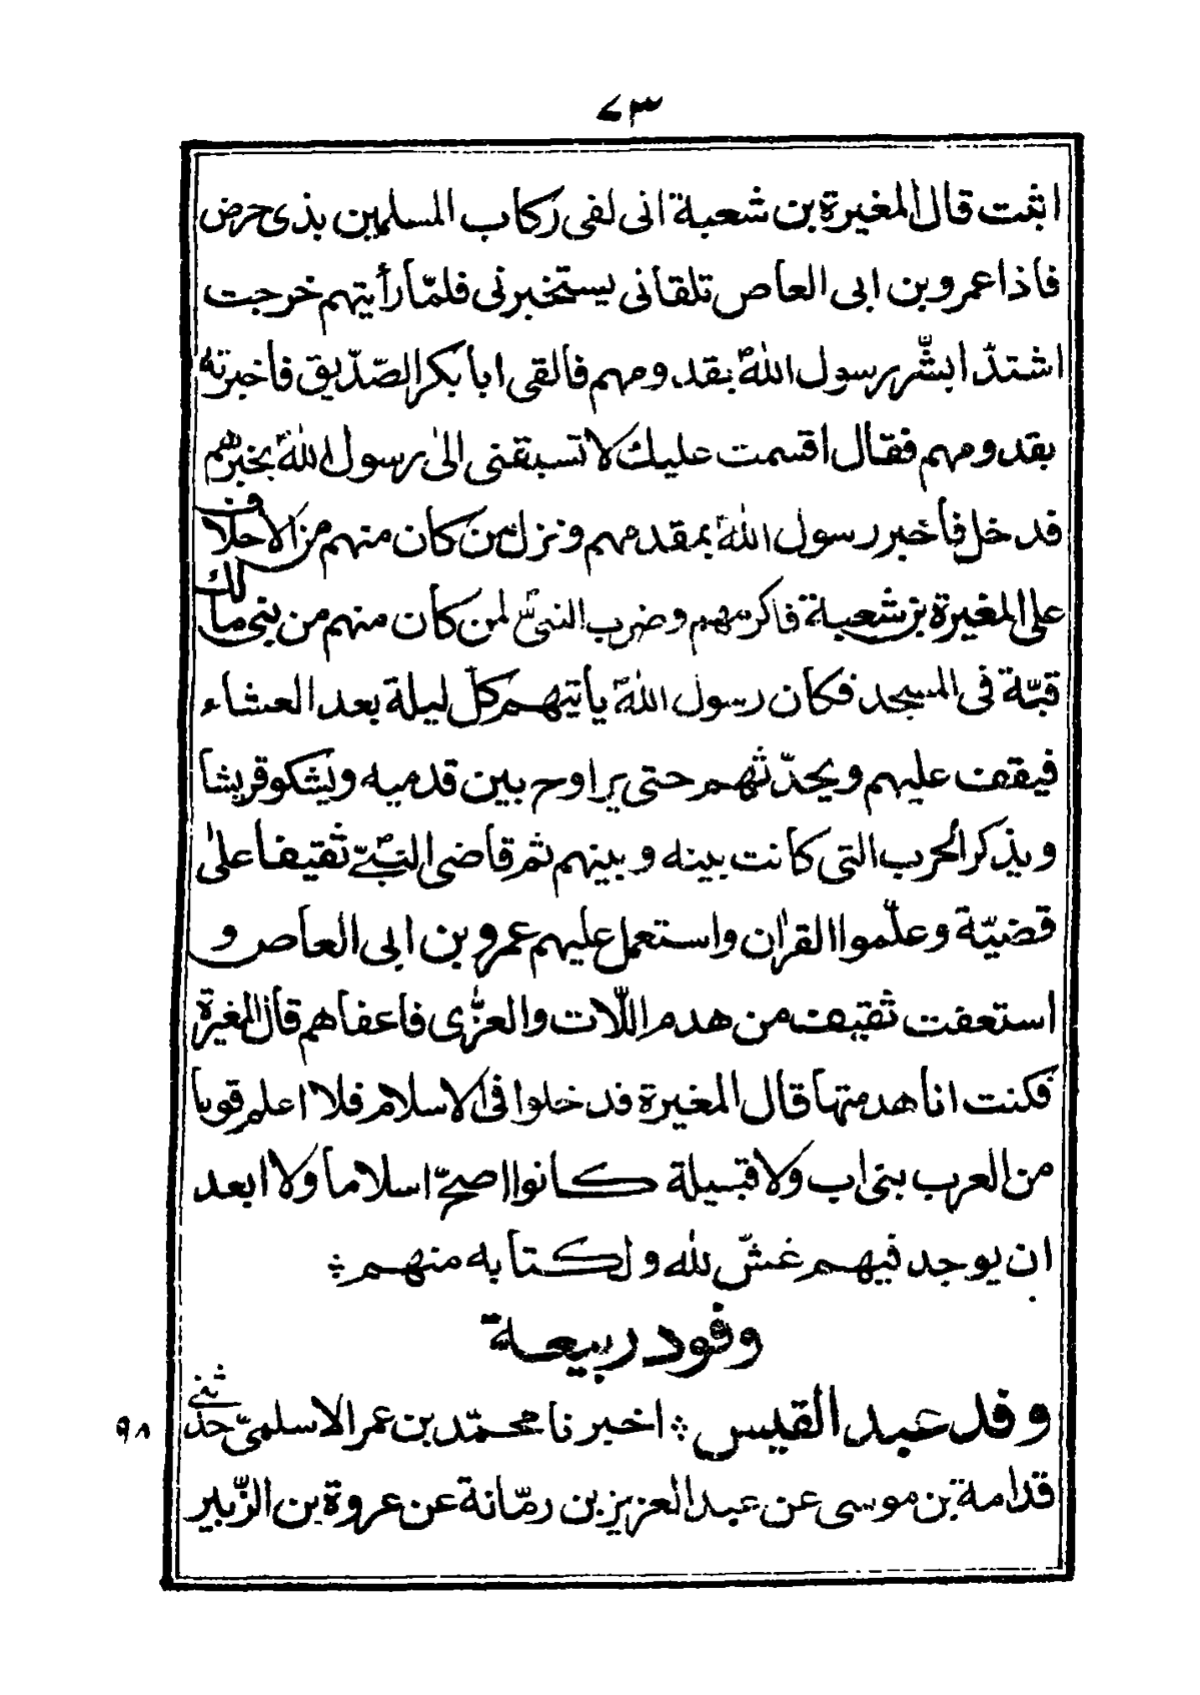 ٧٣
اثبت قال المغيرة بن شعبة انى لفى ركاب المسلمين بذى حرض
فاذا عمرو بن ابى العاص تلقانى يستخبرنى فلمّا رأيتهم خرجت
اشتدّ ابشّر رسول اللهؐ بقدومهم فالقى ابا بكر الصّدّيق فاخبرته
بقدومهم فقال اقسمت عليك لا تسبقنى الى رسول اللهؐ بخبرهم
فدخل فاخبر رسول اللهؐ بمقدمهم ونزل من كان منهم من الاحلاف
على المغيرة بن شعبة فاكرمهم وضرب النبىّؐ لمن كان منهم من بنى مالك
قبّة فى المسجد فكان رسول اللهؐ يأتيهم كلّ ليلة بعد العشاء
فيقف عليهم ويحدّثهم حتى يراوح بين قدميه ويشكو قريشا
ويذكر الحرب التى كانت بينه وبينهم ثم قاضى النبىّؐ ثقيفا على
قضيّة وعلّموا القرآن واستعمل عليهم عمرو بن ابى العاص و
استعفت ثقيف من هدم اللّات والعزّى فاعفاهم قال المغيرة
فكنت انا هدمتها قال المغيرة فدخلوا فى الاسلام فلا اعلم قوما
من العرب بنى اب ولا قبيلة كانوا اصحّ اسلاما ولا ابعد
ان يوجد فيهم غشّ لله ولكتابه منهم ؞
وفود ربيعة
وفد عبد القيس ؞ اخبرنا محمّد بن عمر الاسلمىّ حدّثنى
٩٨
قدامة بن موسى عن عبد العزيز بن رمّانة عن عروة بن الزّبير